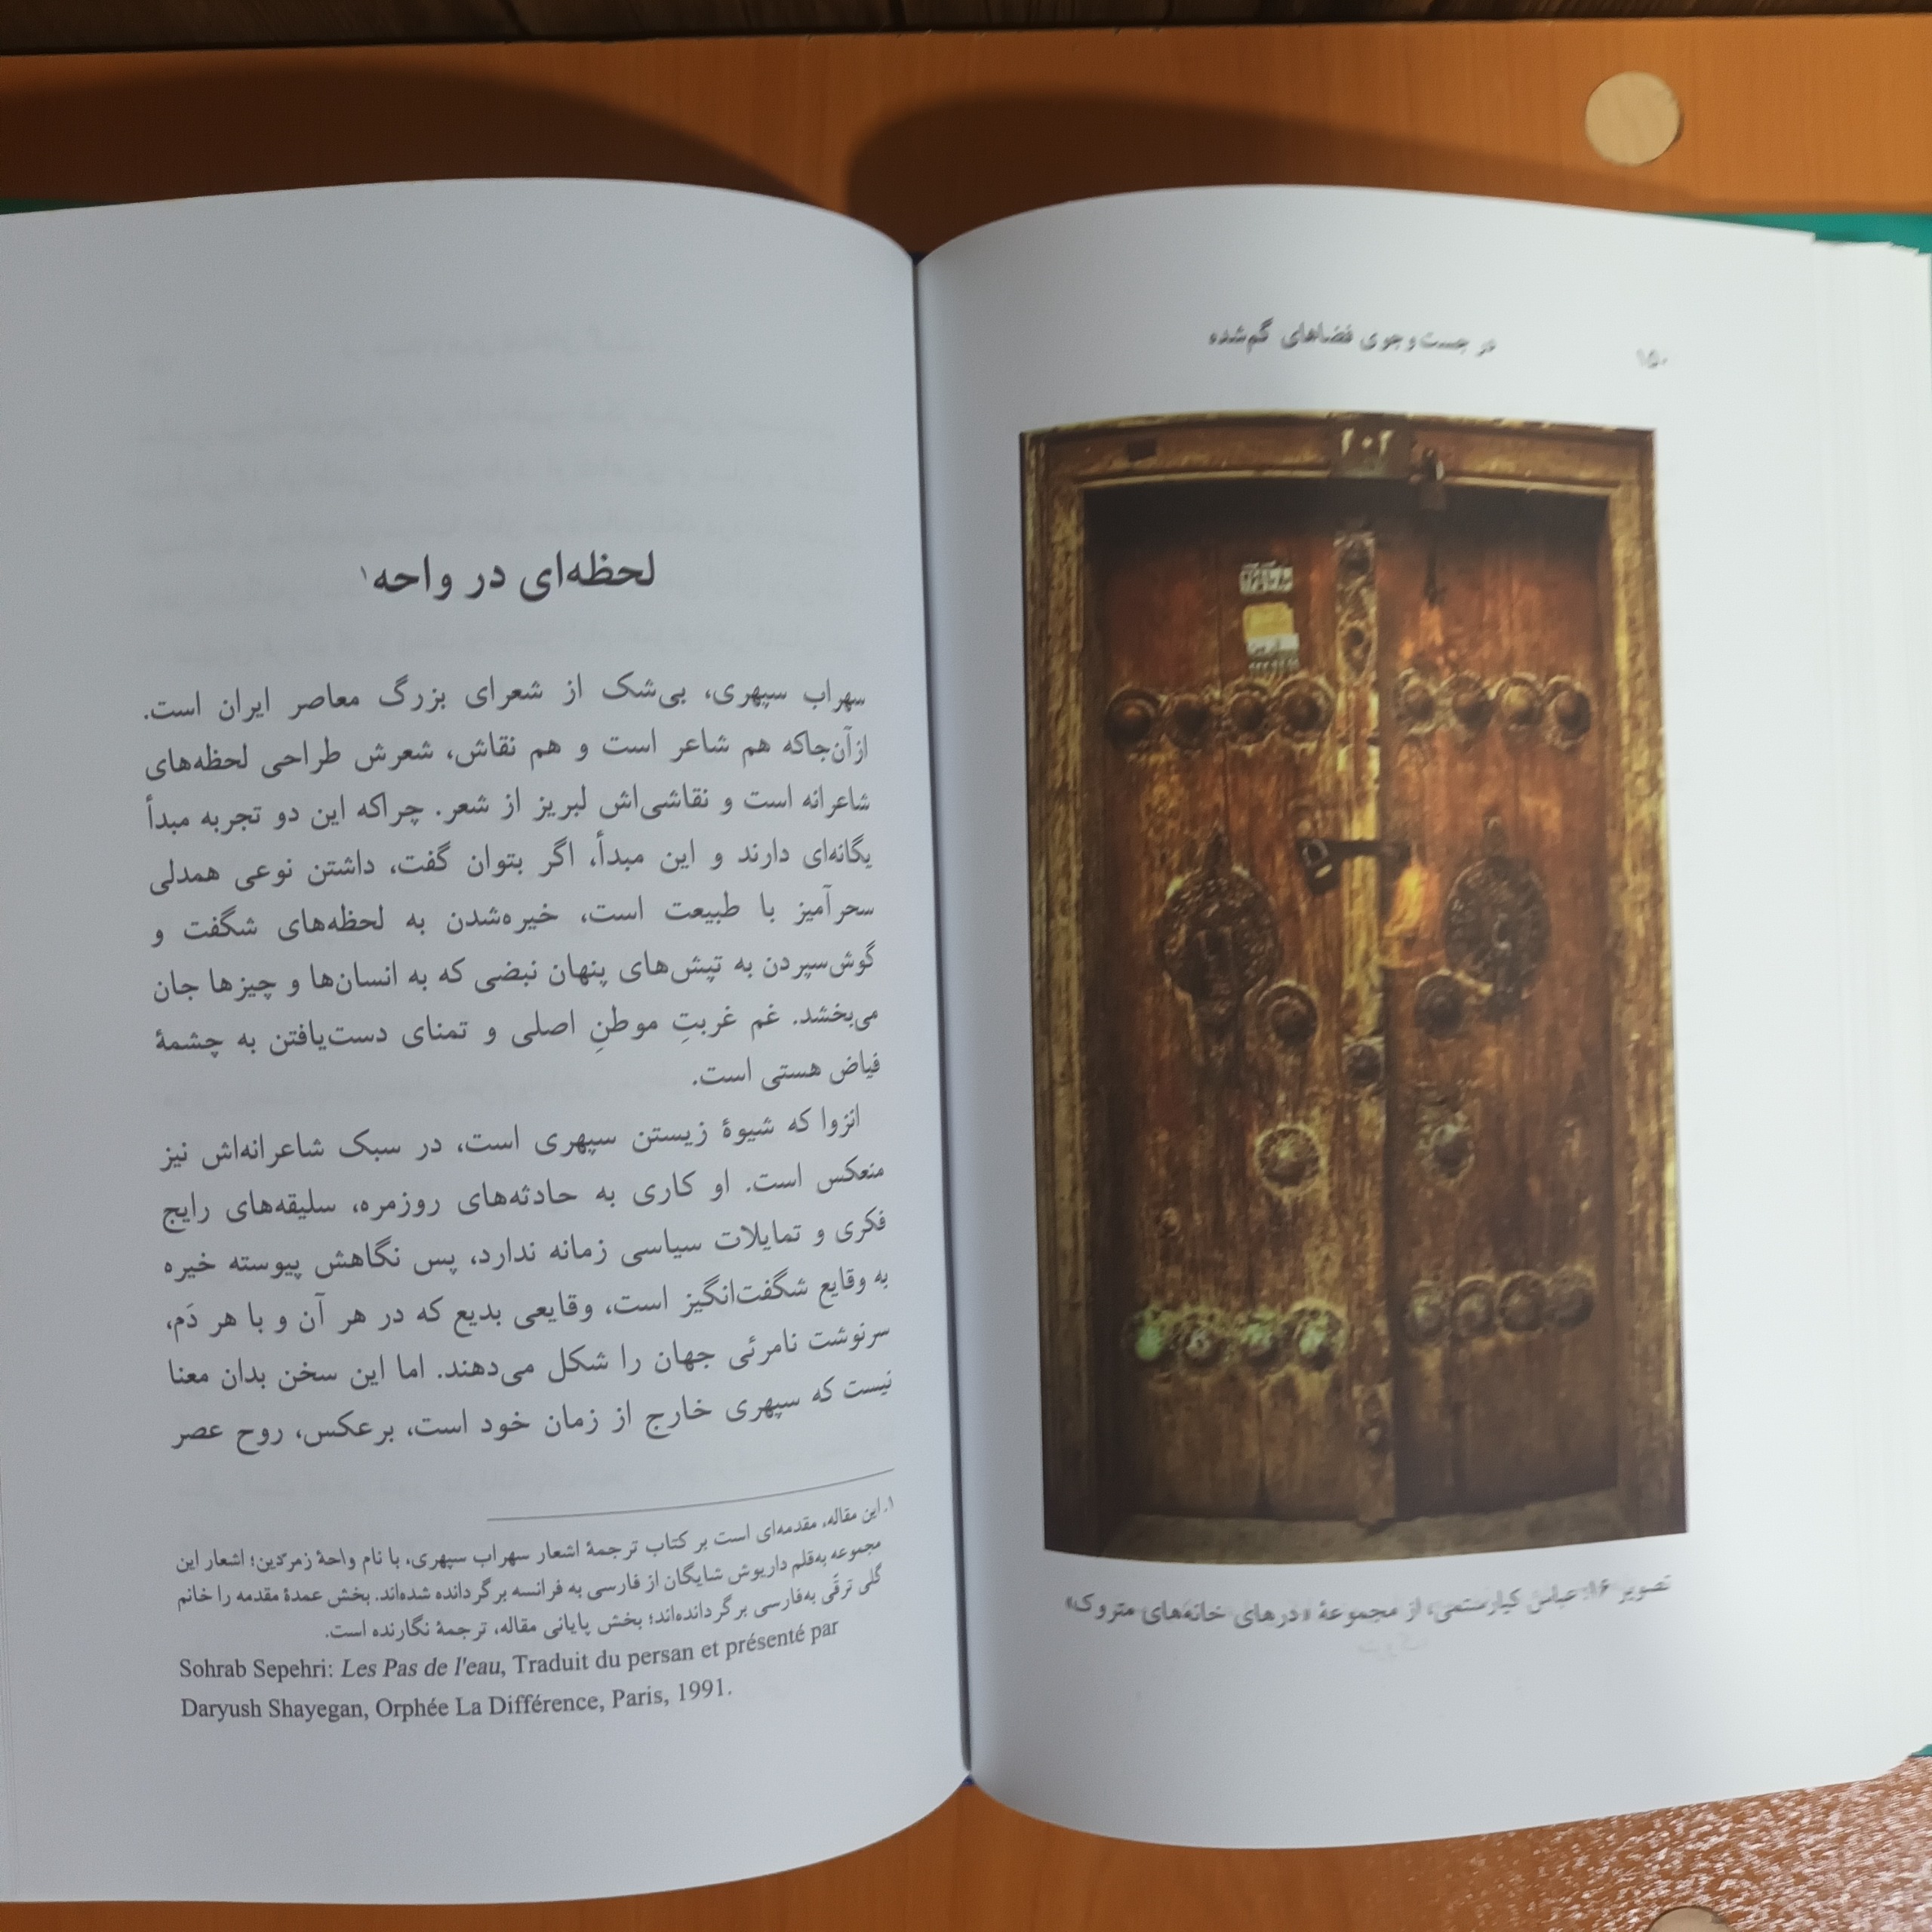 ۱۵۰
در جست‌وجوی فضاهای گم‌شده
۲۰۲
تصویر ۱۶: عباس کیارستمی، از مجموعهٔ «درهای خانه‌های متروک»
لحظه‌ای در واحه۱
سهراب سپهری، بی‌شک از شعرای بزرگ معاصر ایران است.
ازآن‌جاکه هم شاعر است و هم نقاش، شعرش طراحی لحظه‌های
شاعرانه است و نقاشی‌اش لبریز از شعر. چراکه این دو تجربه مبدأ
یگانه‌ای دارند و این مبدأ، اگر بتوان گفت، داشتن نوعی همدلی
سحرآمیز با طبیعت است، خیره‌شدن به لحظه‌های شگفت و
گوش‌سپردن به تپش‌های پنهان نبضی که به انسان‌ها و چیزها جان
می‌بخشد. غم غربتِ موطنِ اصلی و تمنای دست‌یافتن به چشمهٔ
فیاض هستی است.
انزوا که شیوهٔ زیستن سپهری است، در سبک شاعرانه‌اش نیز
منعکس است. او کاری به حادثه‌های روزمره، سلیقه‌های رایج
فکری و تمایلات سیاسی زمانه ندارد، پس نگاهش پیوسته خیره
به وقایع شگفت‌انگیز است، وقایعی بدیع که در هر آن و با هر دَم،
سرنوشت نامرئی جهان را شکل می‌دهند. اما این سخن بدان معنا
نیست که سپهری خارج از زمان خود است، برعکس، روح عصر
۱. این مقاله، مقدمه‌ای است بر کتاب ترجمهٔ اشعار سهراب سپهری، با نام واحهٔ زمرّدین؛ اشعار این
مجموعه به‌قلم داریوش شایگان از فارسی به فرانسه برگردانده شده‌اند. بخش عمدهٔ مقدمه را خانم
گلی ترقّی به‌فارسی برگردانده‌اند؛ بخش پایانی مقاله، ترجمهٔ نگارنده است.
Sohrab Sepehri: Les Pas de l'eau, Traduit du persan et présenté par
Daryush Shayegan, Orphée La Différence, Paris, 1991.